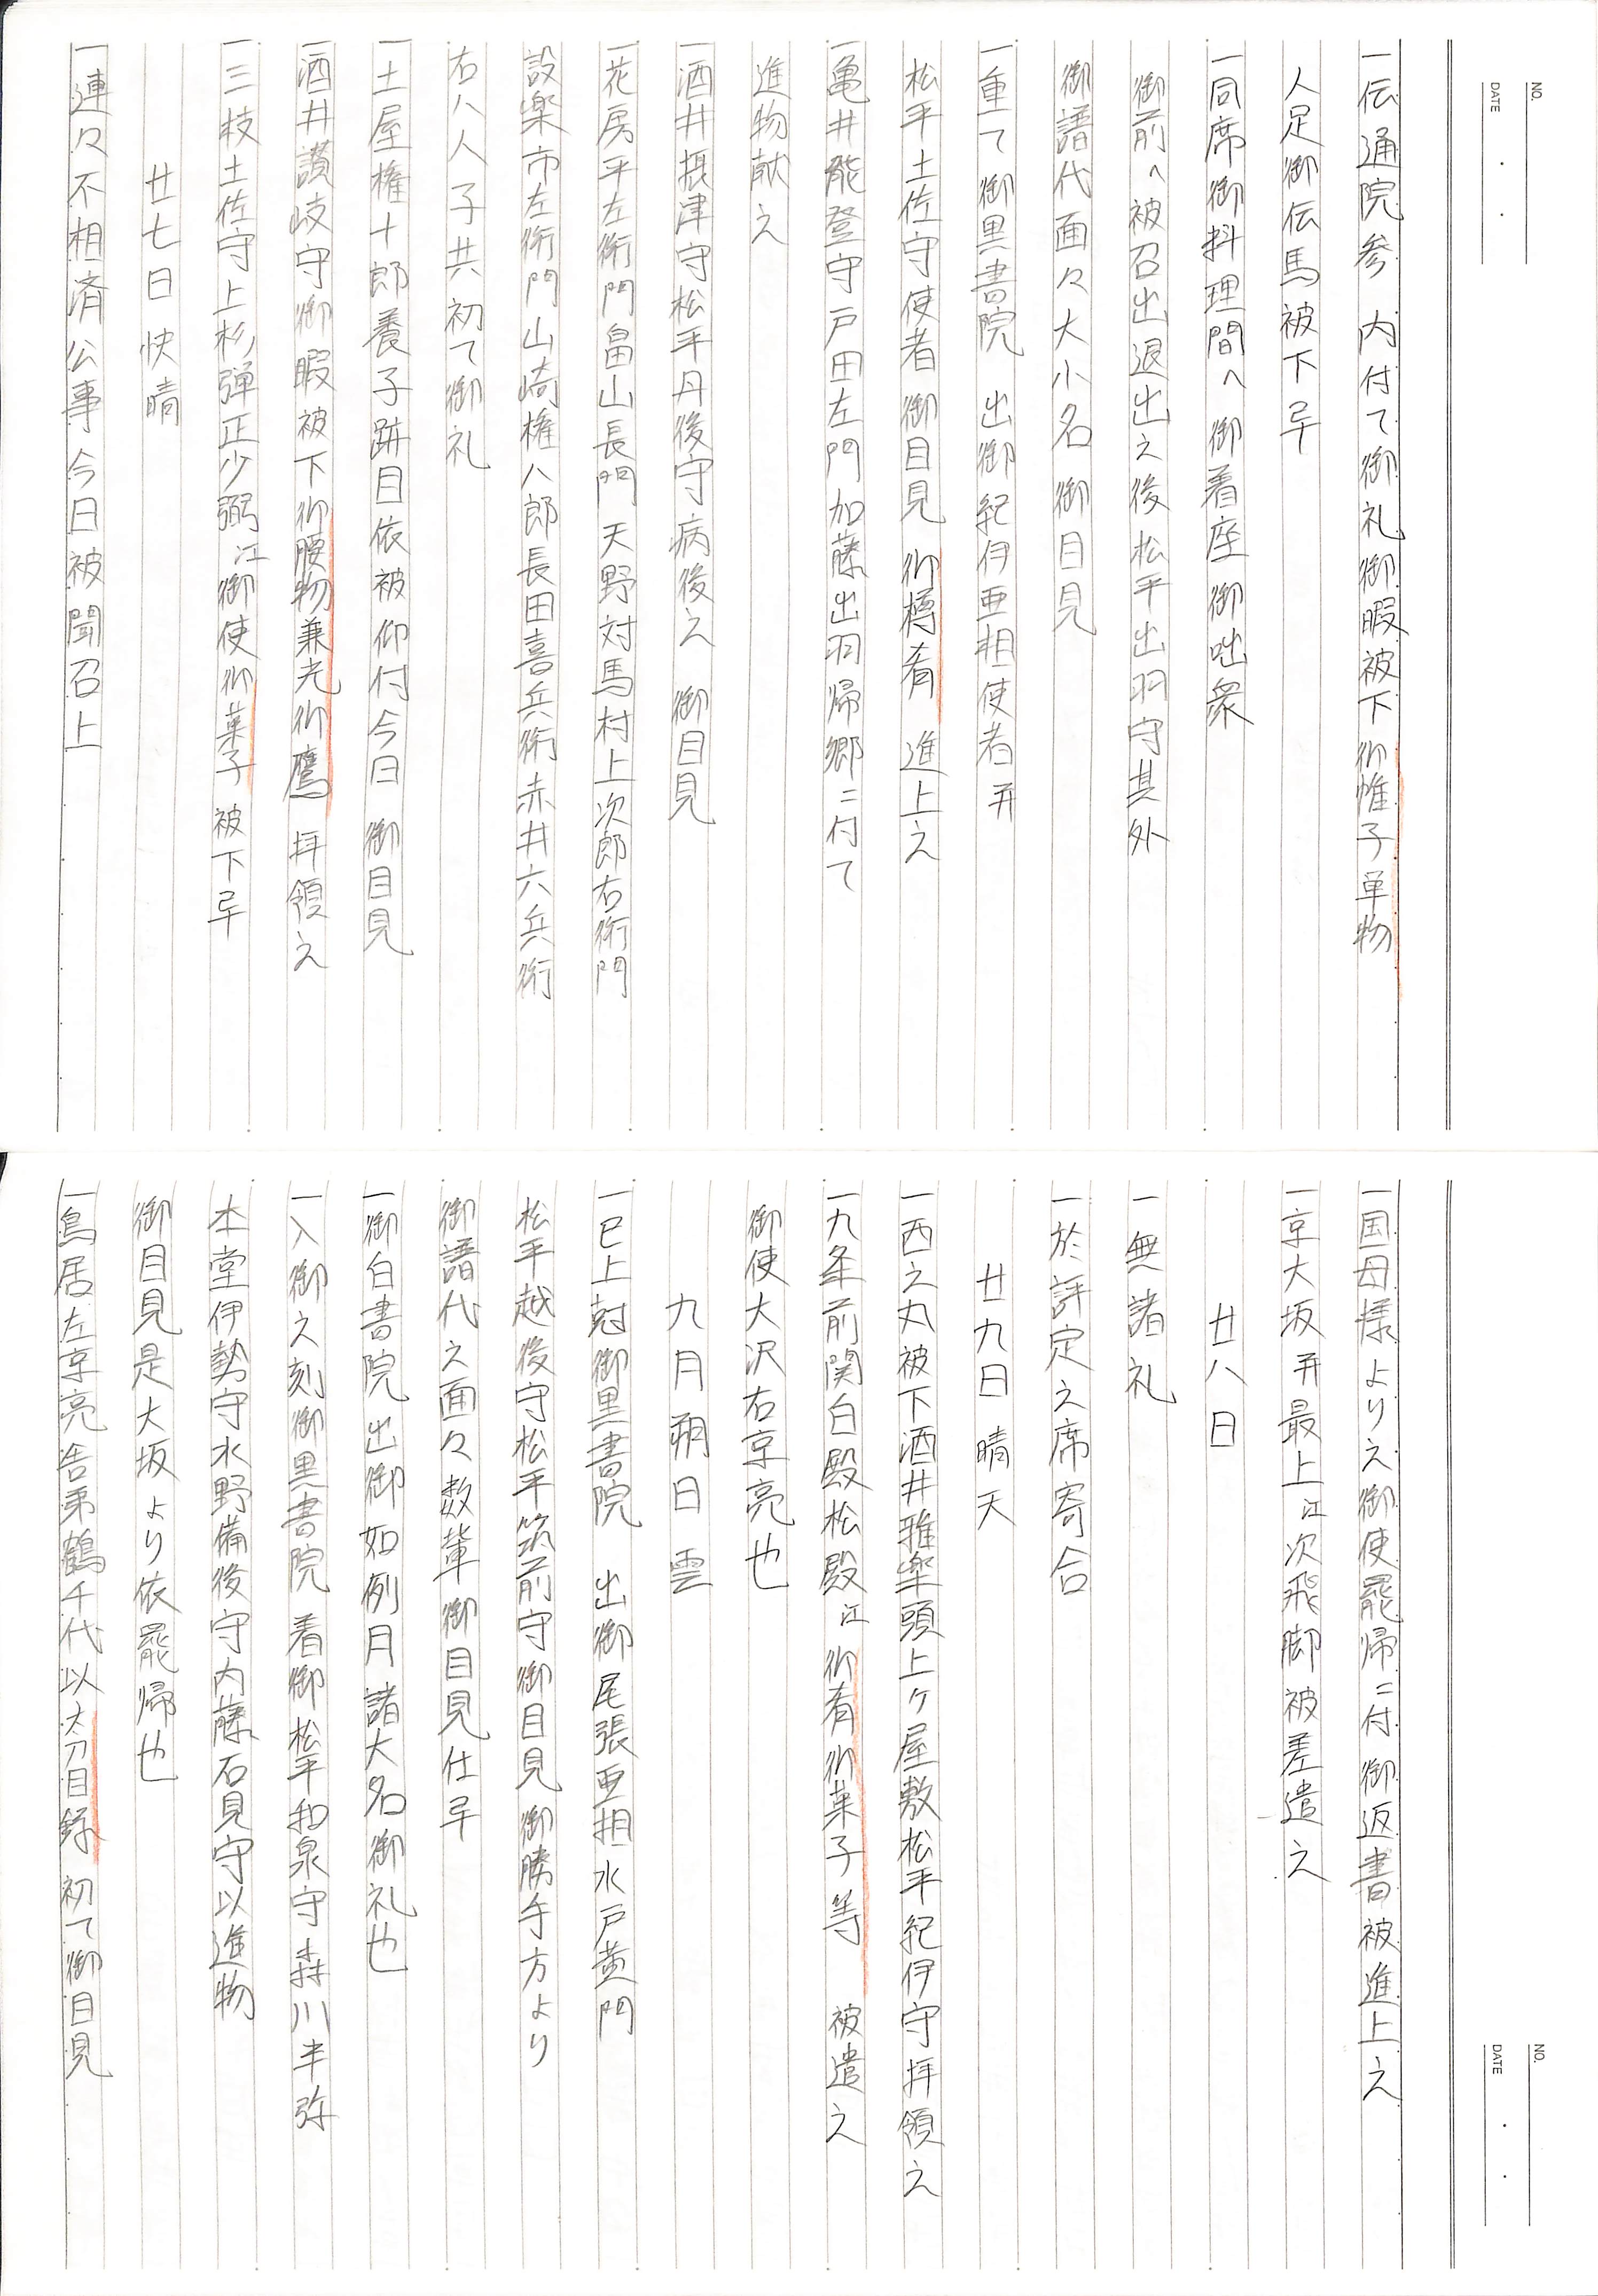 NO.
DATE
一伝通院参 内付て御礼御暇被下御帷子単物
人足御伝馬被下畢
一同席御料理間へ 御着座 御咄衆
御前へ被召出退出之後松平出羽守其外
御譜代面々大小名 御目見
一重て御黒書院 出御紀伊亜相使者并
松平土佐守使者 御目見 御樽肴 進上之
一亀井能登守戸田左門加藤出羽帰郷ニ付て
進物献之
一酒井摂津守松平丹後守病後之 御目見
一花房平左衛門畠山長門天野対馬村上次郎右衛門
設楽市左衛門山崎権八郎長田喜兵衛赤井六兵衛
右八人子共初て御礼
一土屋権十郎養子跡目依被仰付今日 御目見
一酒井讃岐守御暇被下御腰物兼光御鷹 拝領之
一三枝土佐守上杉弾正少弼江御使御菓子 被下畢
廿七日 快晴
一連々不相済公事今日被聞召上
NO.
DATE
一国母様より之御使罷帰ニ付 御返書被進上之
一京大坂并最上江次飛脚被差遣之
廿八日
一無諸礼
一於評定之席寄合
廿九日 晴天
一西之丸被下酒井雅楽頭上ケ屋敷松平紀伊守拝領之
一九条前関白殿松殿江 御肴御菓子等 被遣之
御使大沢右京亮也
九月朔日 雲
一巳上尅御黒書院 出御尾張亜相水戸黄門
松平越後守松平筑前守御目見 御勝手方より
御譜代之面々数輩 御目見仕畢
一御白書院 出御如例月諸大名御礼也
一入御之刻御黒書院 着御松平和泉守森川半弥
本堂伊勢守水野備後守内藤石見守以進物
御目見是大坂より依罷帰也
一鳥居左京亮舎弟鶴千代以太刀目録 初て御目見